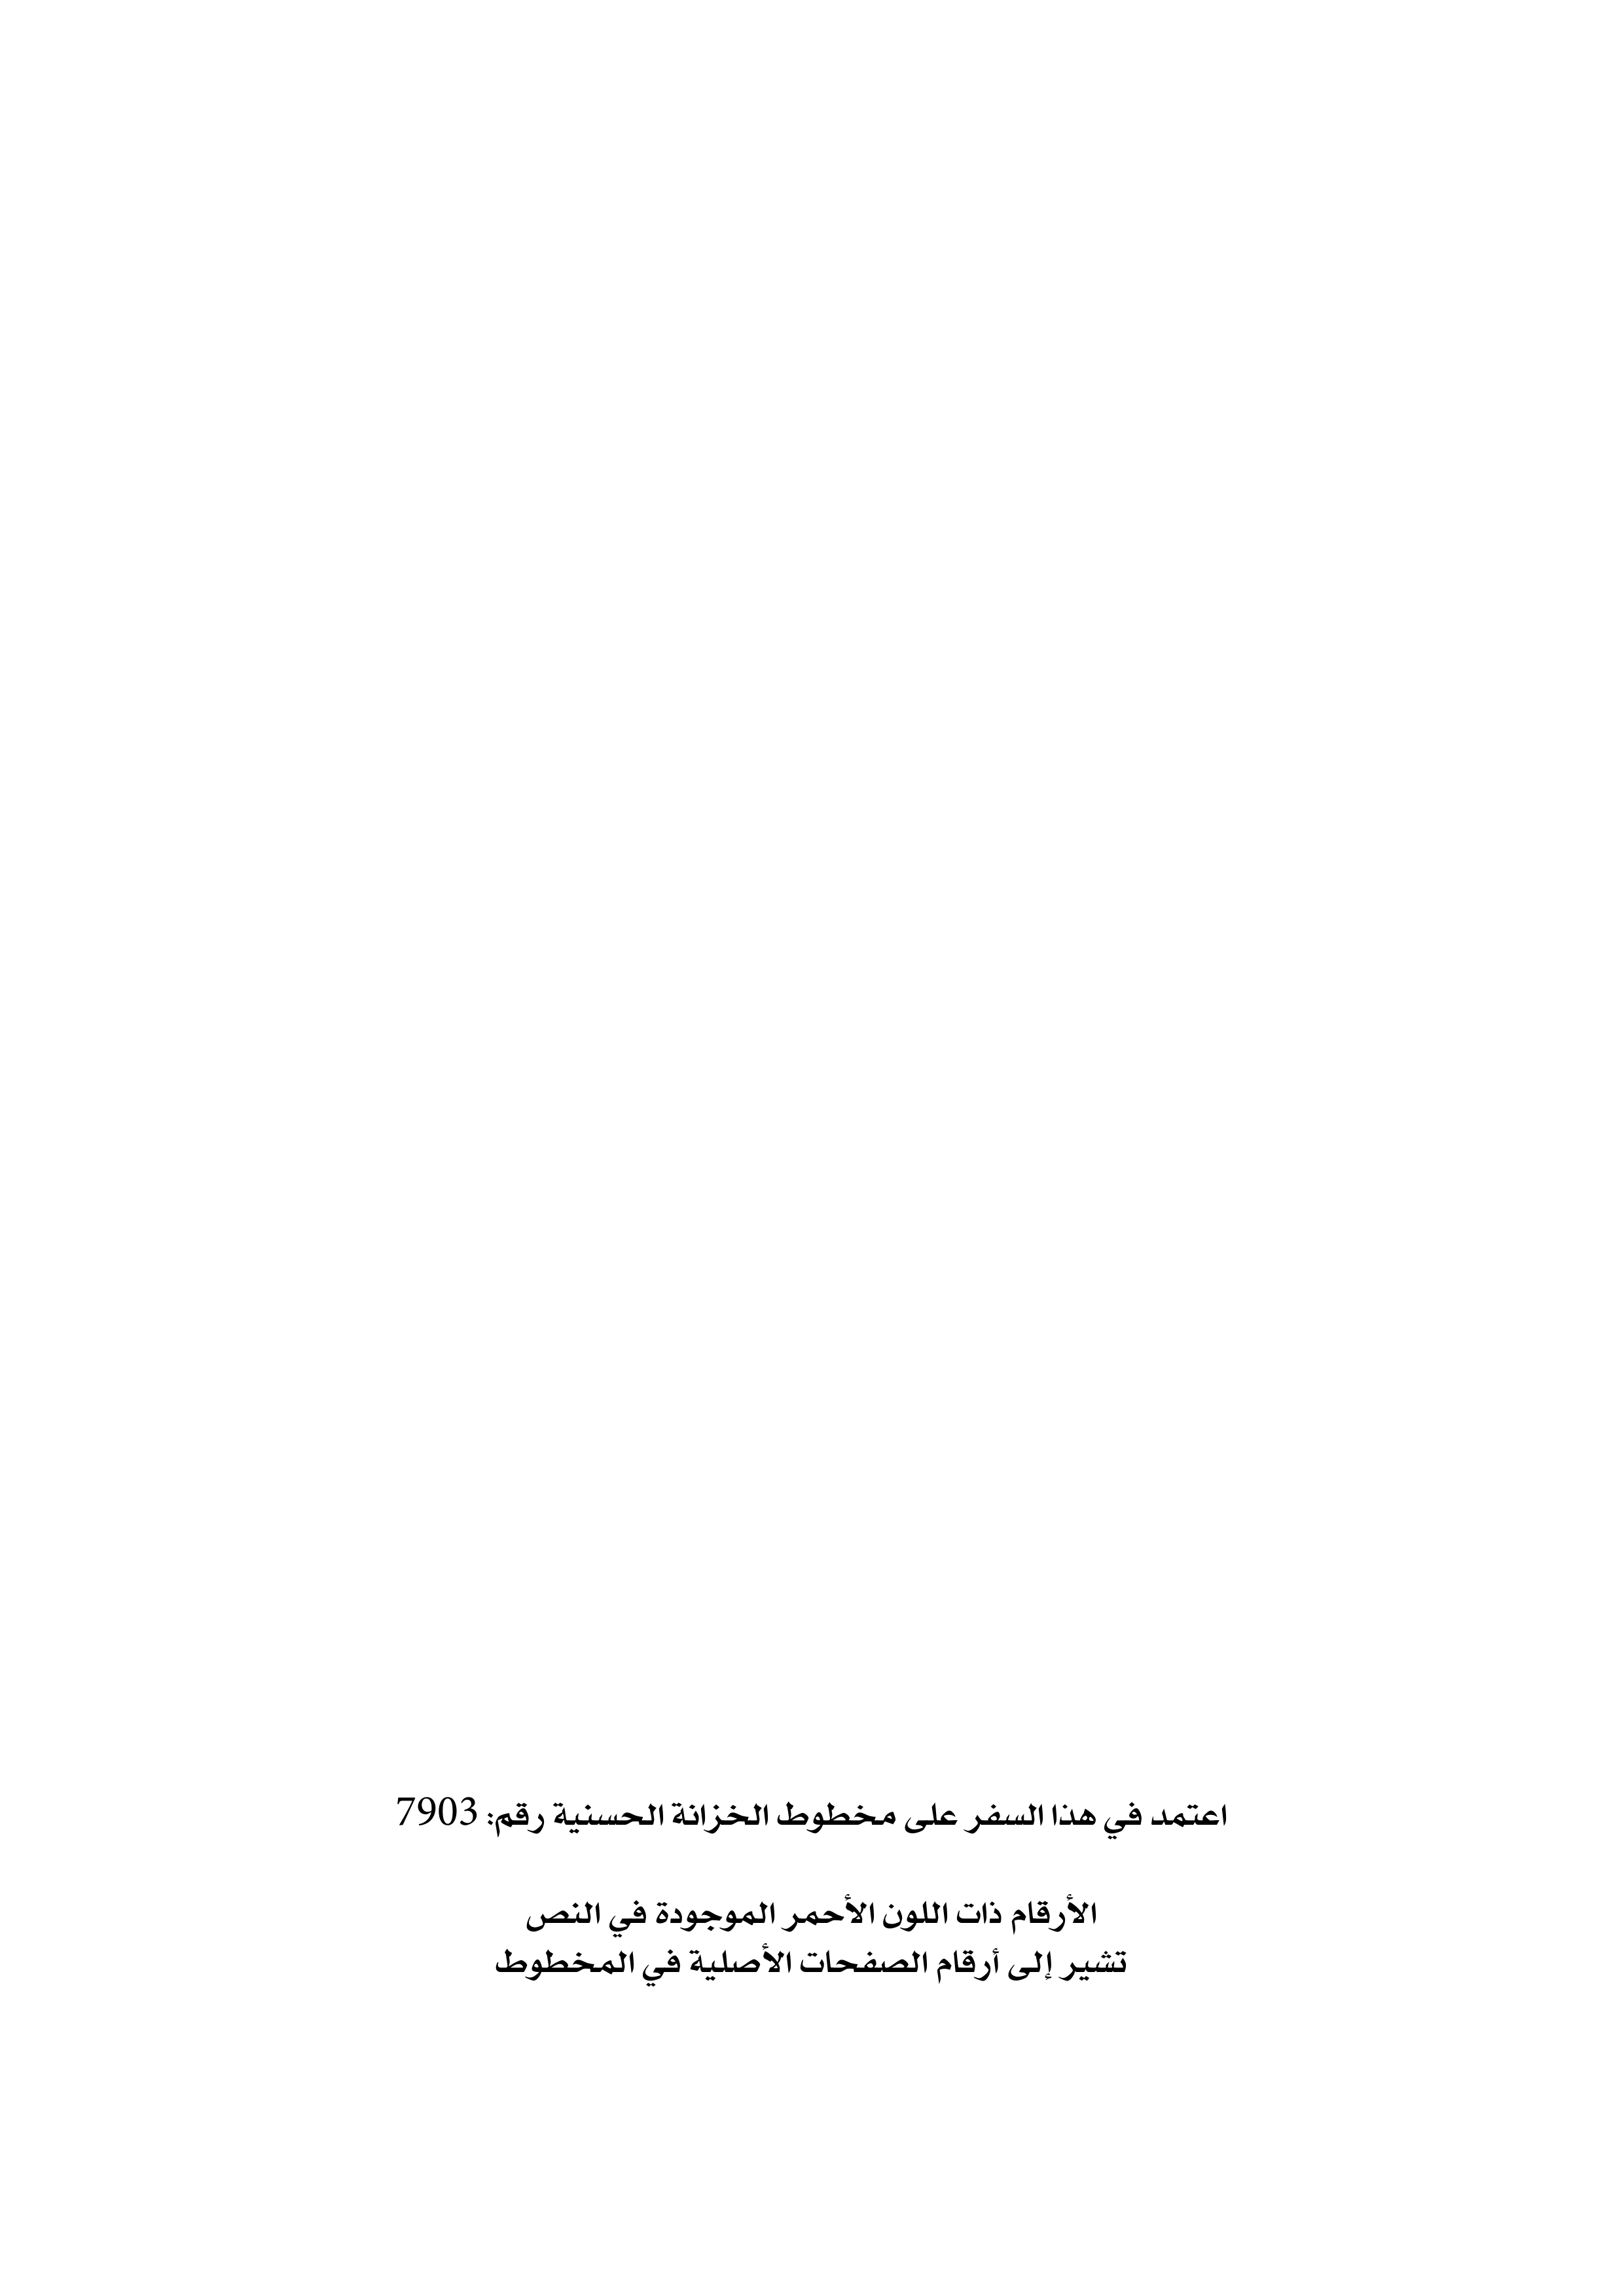 اعتمد في هذا السفر على مخطوط الخزانة الحسنية رقم: 7903
الأرقام ذات اللون الأحمر الموجودة في النص
تشير إلى أرقام الصفحات الأصلية في المخطوط